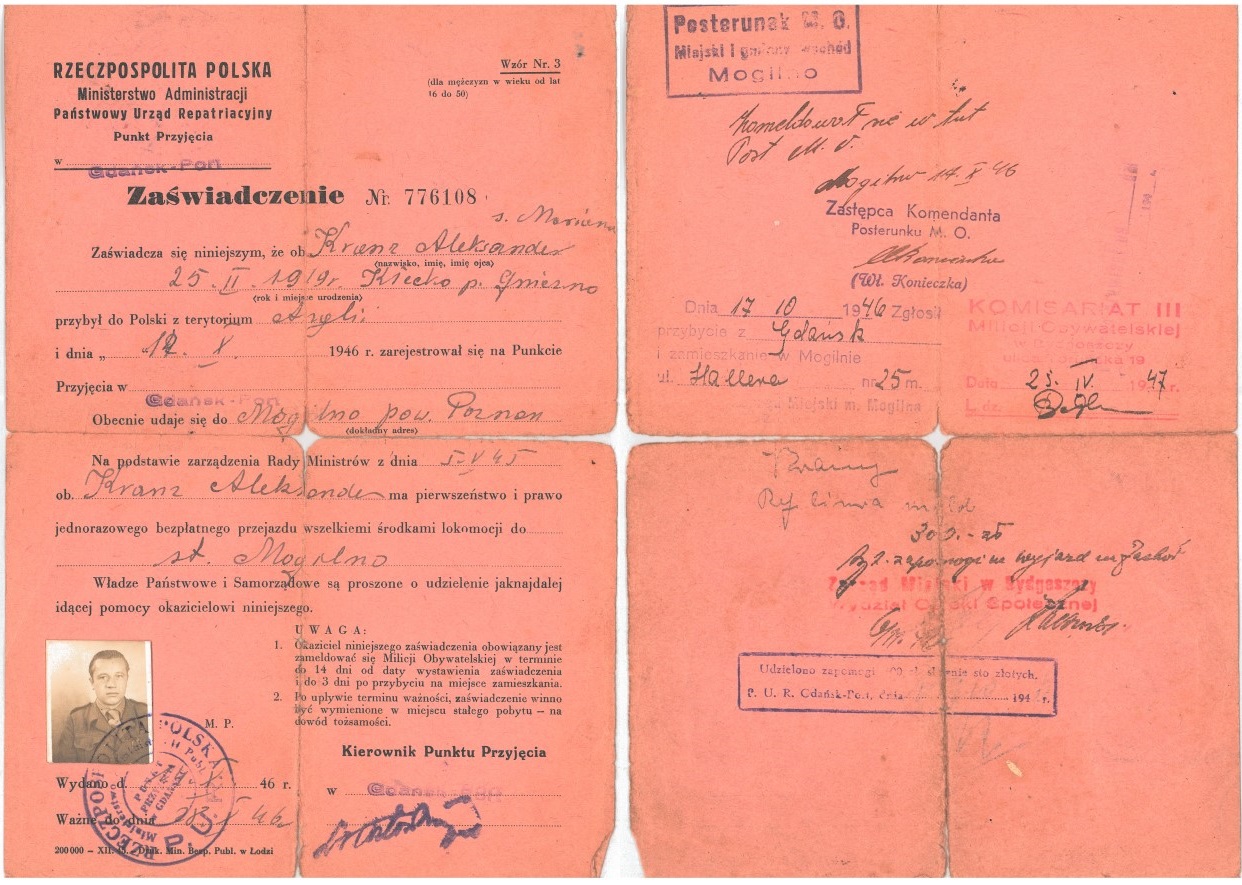 RZECZPOSPOLITA POLSKA
Ministerstwo Administracji
Państwowy Urząd Repatriacyjny
Punkt Przyjęcia
w Gdańsk-Port
Wzór Nr. 3
(dla mężczyzn w wieku od lat
16 do 50)
Zaświadczenie Nr. 776108
s. Mariana
Zaświadcza się niniejszym, że ob. Kranz Aleksander
(nazwisko, imię, imię ojca)
25. II. 1919r. Kłecko p. Gniezno
(rok i miejsce urodzenia)
przybył do Polski z terytorium Anglii
i dnia „ X. 1946 r. zarejestrował się na Punkcie
Przyjęcia w Gdańsk-Port
Obecnie udaje się do Mogilno pow. Poznań
(dokładny adres)
Na podstawie zarządzenia Rady Ministrów z dnia 5-V 45
ob. Kranz Aleksander ma pierwszeństwo i prawo
jednorazowego bezpłatnego przejazdu wszelkiemi środkami lokomocji do
st. Mogilno
Władze Państwowe i Samorządowe są proszone o udzielenie jaknajdalej
idącej pomocy okazicielowi niniejszego.
UWAGA:
1. Okaziciel niniejszego zaświadczenia obowiązany jest
zameldować się Milicji Obywatelskiej w terminie
do 14 dni od daty wystawienia zaświadczenia
i do 3 dni po przybyciu na miejsce zamieszkania.
2. Po upływie terminu ważności, zaświadczenie winno
być wymienione w miejscu stałego pobytu – na
dowód tożsamości.
M. P.
Kierownik Punktu Przyjęcia
Wydano d. X 46 r.
w Gdańsk-Port
Ważne do dnia 46
RZECZPOSPOLITA POLSKA
200000 – XII. 45 – Druk. Min. Bezp. Publ. w Łodzi
Posterunek M. O.
Miejski i gminny wschód
Mogilno
Zameldował się w tut
Post M. O.
Mogilno 17 X 46
Zastępca Komendanta
Posterunku M. O.
(Wł. Konieczka)
Dnia 17 10 1946 Zgłosił
przybycie z Gdańsk
i zamieszkanie w Mogilnie
ul. Hallera nr 25 m.
Miejski m. Mogilna
KOMISARIAT III
Milicji Obywatelskiej
w Bydgoszczy
19
Data 25. IV. 1947 r.
L. dz.
300.- zł
zapomogi na wyjazd na Zachód
Zarząd Miejski w Bydgoszczy
Wydział Opieki Społecznej
Udzielono zapomogi złotych.
P. U. R. Gdańsk-Port, dnia 194 r.